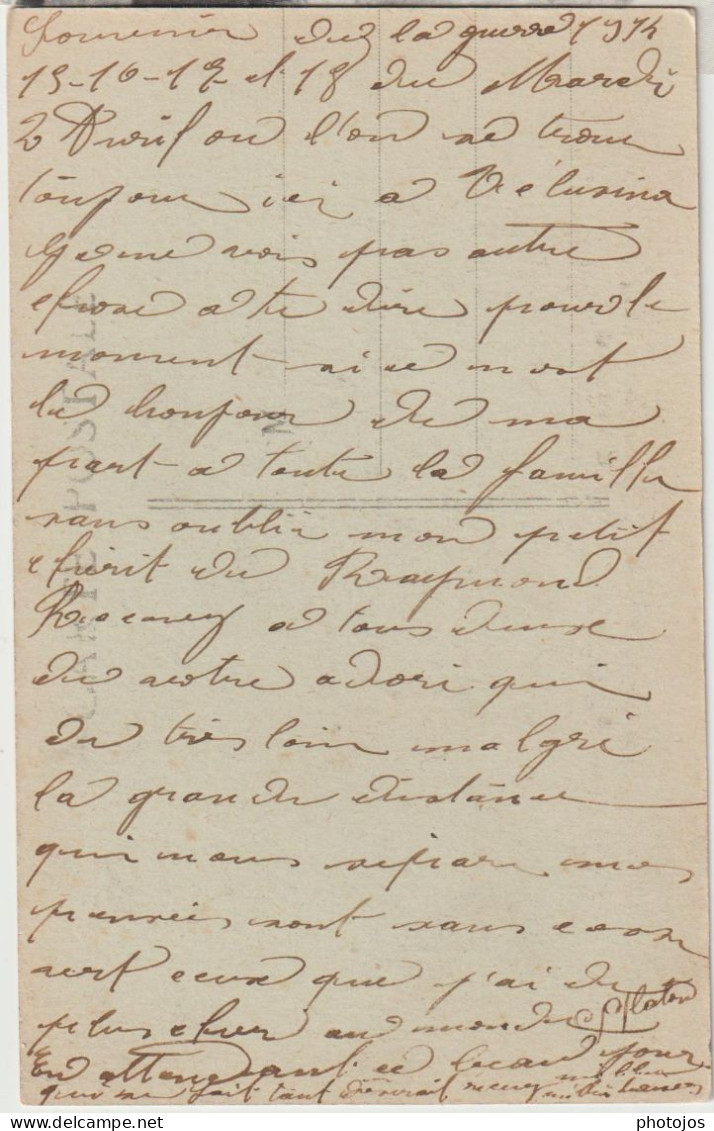 Souvenir du la guerre 1914
15-16-17- et 18 du Mardi
2 Avril ou l'on se trouve
toujour ici a Vélusina
Je ne vois pas autre
chose a te dire pour le
moment si ce n'est
le bonjour de ma
part a toute la famille
sans oublié mon petit
cherit du Raymond
Recevez a tous deux
du votre adoré qui
du très loin malgré
la grande distance
qui nous separe mes
pensées sont sans cesse
vert ceux que j'ai du
plus cher au monde Platon
En attendant ce beau jour
qui se fait tant recevez
CARTE POSTALE
photojos
delcampe.net